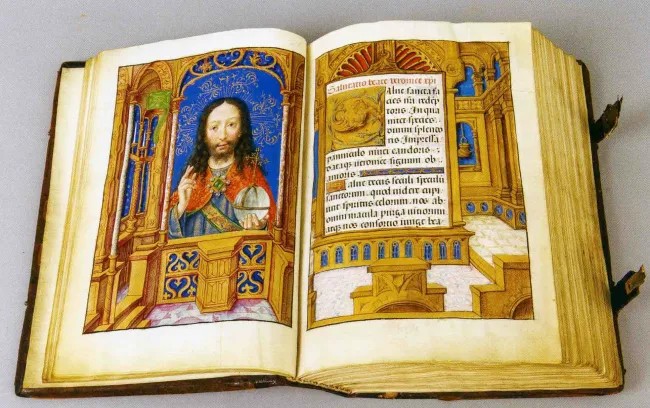 Salutatio beate veronice xpi
Salue sancta fa
cies nri redep
toris. In qua
micet species
diuini splendo
ris Impressa
panniculo niuei candoris
Dataqz veronice signum ob
amoris
Salue decus seculi speculū
sanctorum. quod videre cupi
unt spiritus celorum. nos ab
omni macula purga viciorum
atqz nos consortio iunge bea